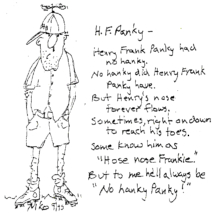 H.F. Panky –
Henry Frank Panky had
no hanky.
No hanky did Henry Frank
Panky have.
But Henry's nose
forever flows.
Sometimes, right on down
to reach his toes.
Some know him as
"Hose nose Frankie."
But to me he'll always be
"No hanky Panky!"